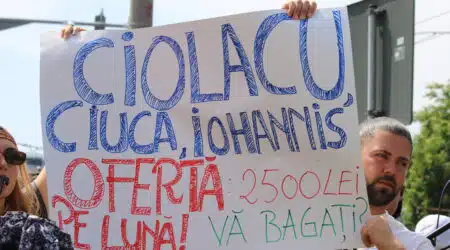 CIOLACU,
CIUCĂ, iOHANNiS,
OFERTĂ: 2500 LEI
PE LUNĂ! VĂ BAGAȚI?